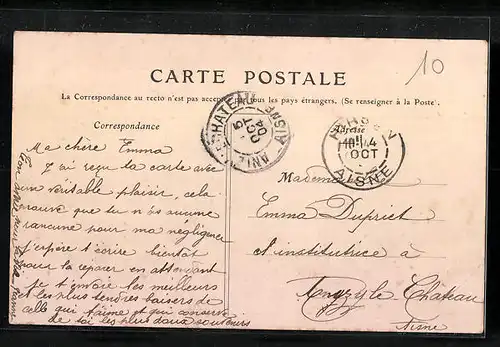 10
CARTE POSTALE
La Correspondance au recto n'est pas acceptée par tous les pays étrangers. (Se renseigner à la Poste.)
Correspondance
Adresse
CHATEAU AISNE
5
OCT
04
ANIZY
4
OCT
AISNE
Ma chère Emma
J'ai reçu ta carte avec
un véritable plaisir, cela
prouve que tu n'as aucune
rancune pour ma négligence
j'espère t'écrire bientôt
pour la réparer en attendant
je t'envoie les meilleurs
et les plus tendres baisers de
celle qui t'aime et qui conserve
de toi les plus doux souvenirs
Mademoiselle
Emma Dupriet
Institutrice à
Anizy le Château
Aisne